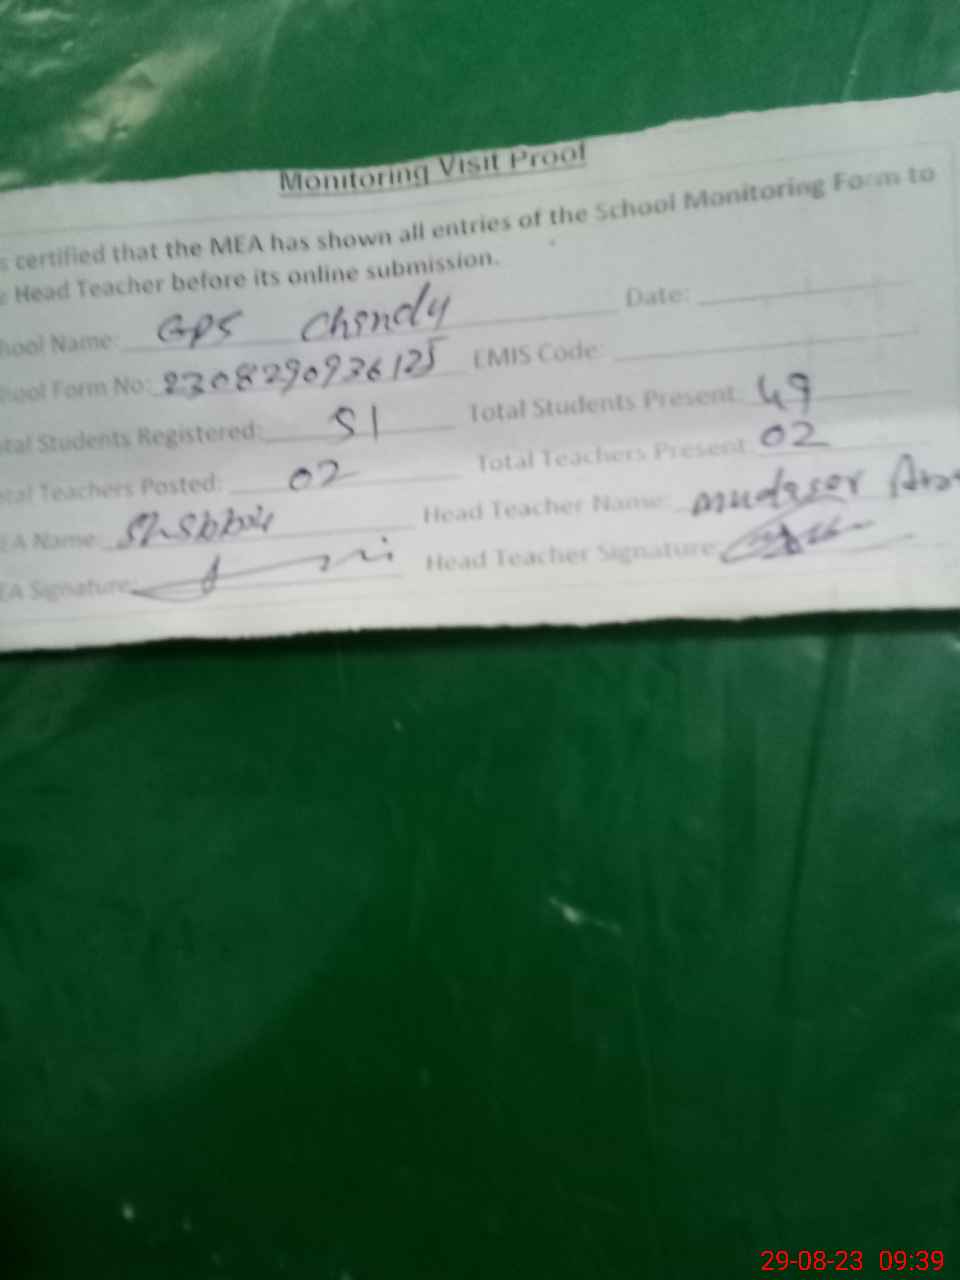 Monitoring Visit Proof
s certified that the MEA has shown all entries of the School Monitoring Form to
e Head Teacher before its online submission.
hool Name: GPS Chandy Date:
hool Form No: 2308290936125 EMIS Code:
tal Students Registered: 51 Total Students Present: 49
tal Teachers Posted: 02 Total Teachers Present: 02
EA Name: Shabbir Head Teacher Name: mudaser
EA Signature: Head Teacher Signature:
29-08-23 09:39